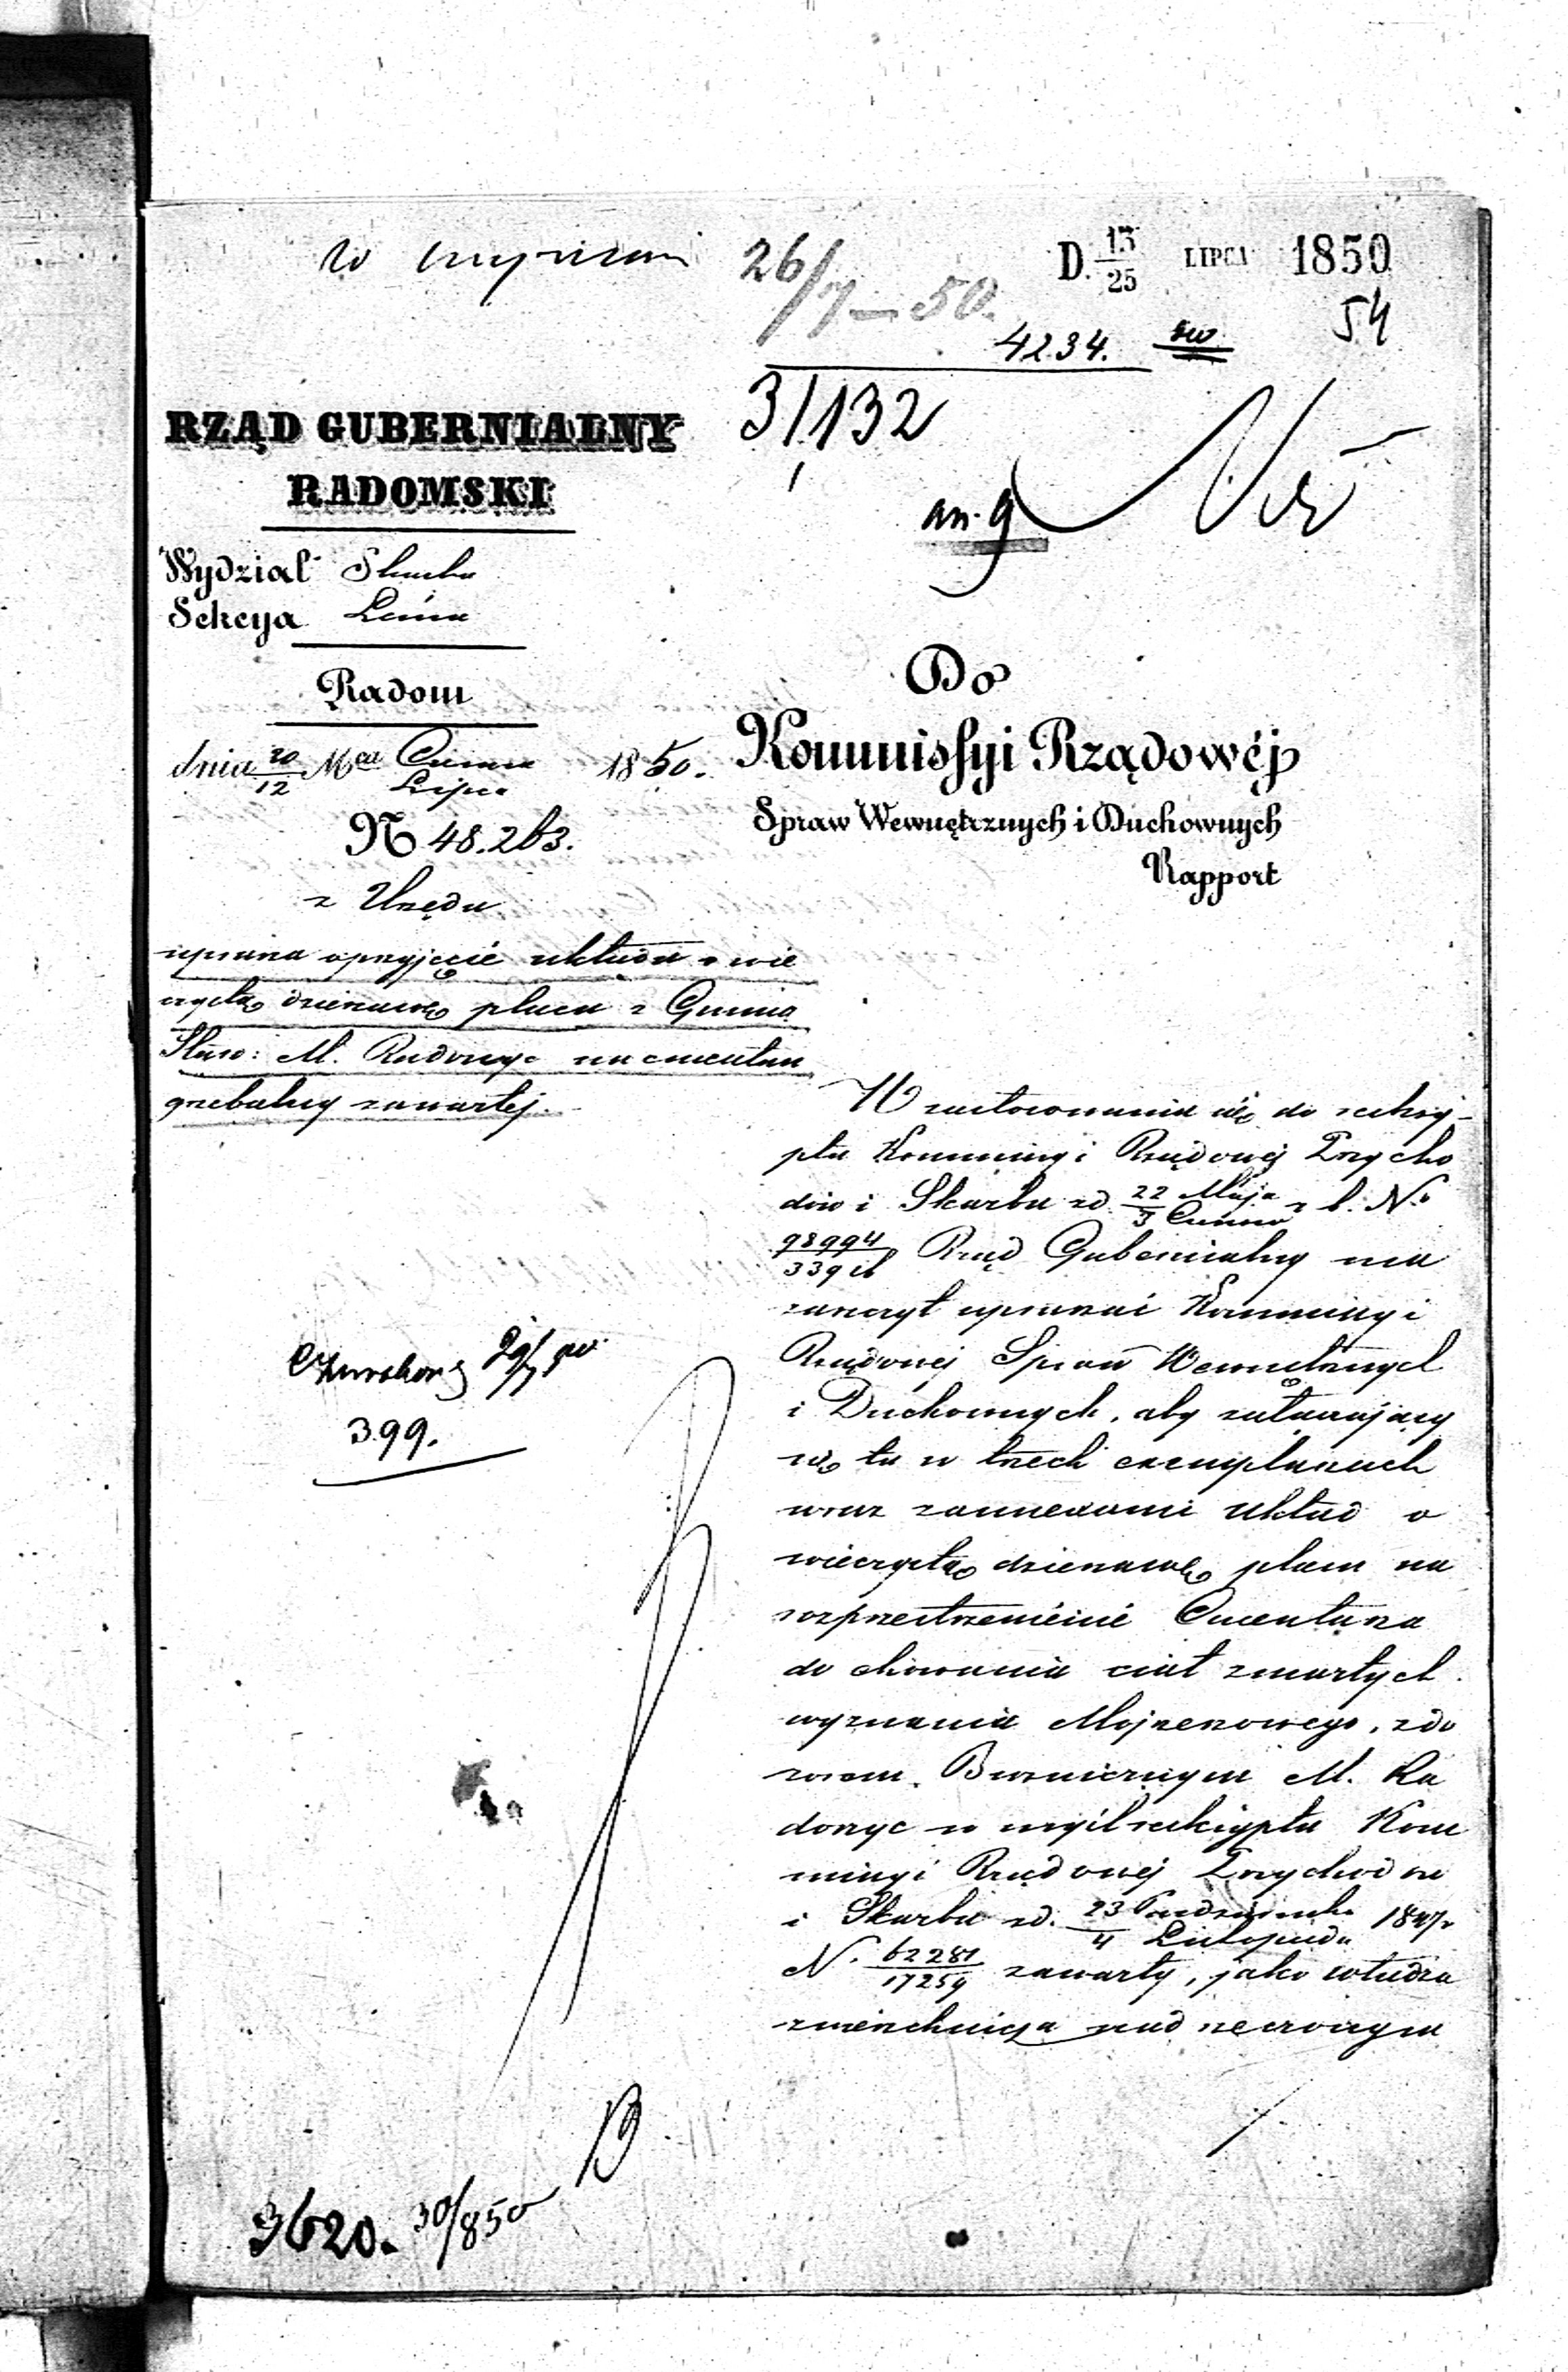 26/7—50.
D. 13/25 LIPCA 1850
54
4234.
31132
RZĄD GUBERNIALNY
RADOMSKI
Wydział Skarbu
Sekcya Leśna
Radom
dnia 20/12 Mca Czerwca/Lipca 1850.
N 48.263.
z Urzędu
uprasza o przyjęcie układu o wie
czystą dzierzawę placu z Gminą
Staro: M. Radoszyc na cmentarz
grzebalny zawartej.
Do
Kommissyi Rządowéj
Spraw Wewnętrznych i Duchownych
Rapport
W zastosowaniu się do reskry-
ptu Kommissyi Rządowej Przycho
dów i Skarbu z d. 22 Maja/3 Czerwca r. b. No
98994/33916 Rząd Gubernialny ma
zaszczyt upraszać Kommissyi
Rządowej Spraw Wewnętrznych
i Duchownych, aby załączający
się tu w trzech exemplarzach
wraz z annexami układ o
wieczystą dzierzawę placu na
rozprzestrzenienie Cmentarza
do chowania ciał zmarłych
wyznania Mojżeszowego, z do
zorem Bożniczym M. Ra
doszyc w myśl reskryptu Kom
missyi Rządowej Przychodów
i Skarbu z d. 23 Października/4 Listopada 1847 r.
N. 62281/17259 zawarty, jako władza
zwierzchnicza nad rzeczonym
399.
3620. 30/850